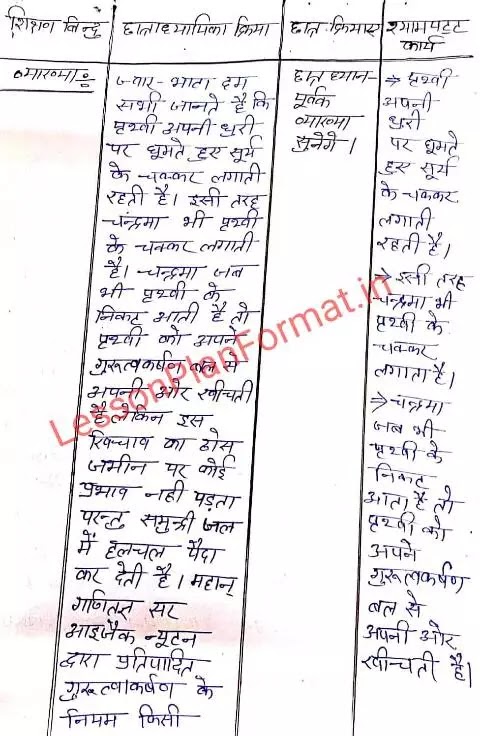 शिक्षण बिन्दु
छात्राध्यापिका क्रिया
छात्र क्रियाएं
श्यामपट्ट
कार्य
व्याख्या:
ज्वार-भाटा हम
सभी जानते है कि
पृथ्वी अपनी धुरी
पर घूमते हुए सूर्य
के चक्कर लगाती
रहती है। इसी तरह
चंन्द्रमा भी पृथ्वी
के चक्कर लगाती
है। चन्द्रमा जब
भी पृथ्वी के
निकट आती है तो
पृथ्वी को अपने
गुरूत्वकर्षण बल से
अपनी ओर खींचती
है लेकिन इस
खिंचाव का ठोस
जमीन पर कोई
प्रभाव नही पड़ता
परन्तु समुन्द्री जल
में हलचल पैदा
कर देती है। महान्
गणितज्ञ सर
आइजैक न्यूटन
द्वारा प्रतिपादित
गुरूत्वाकर्षण के
नियम किसी
छात्र ध्यान-
पूर्वक
व्याख्या
सुनेगे।
⇒ पृथ्वी
अपनी
धुरी
पर घूमते
हुए सूर्य
के चक्कर
लगाती
रहती है।
⇒ इसी तरह
चन्द्रमा भी
पृथ्वी के
चक्कर
लगाता है।
⇒ चन्द्रमा
जब भी
पृथ्वी के
निकट
आता है तो
पृथ्वी को
अपने
गुरूत्वकर्षण
बल से
अपनी ओर
खींचती है।
LessonPlanFormat.in